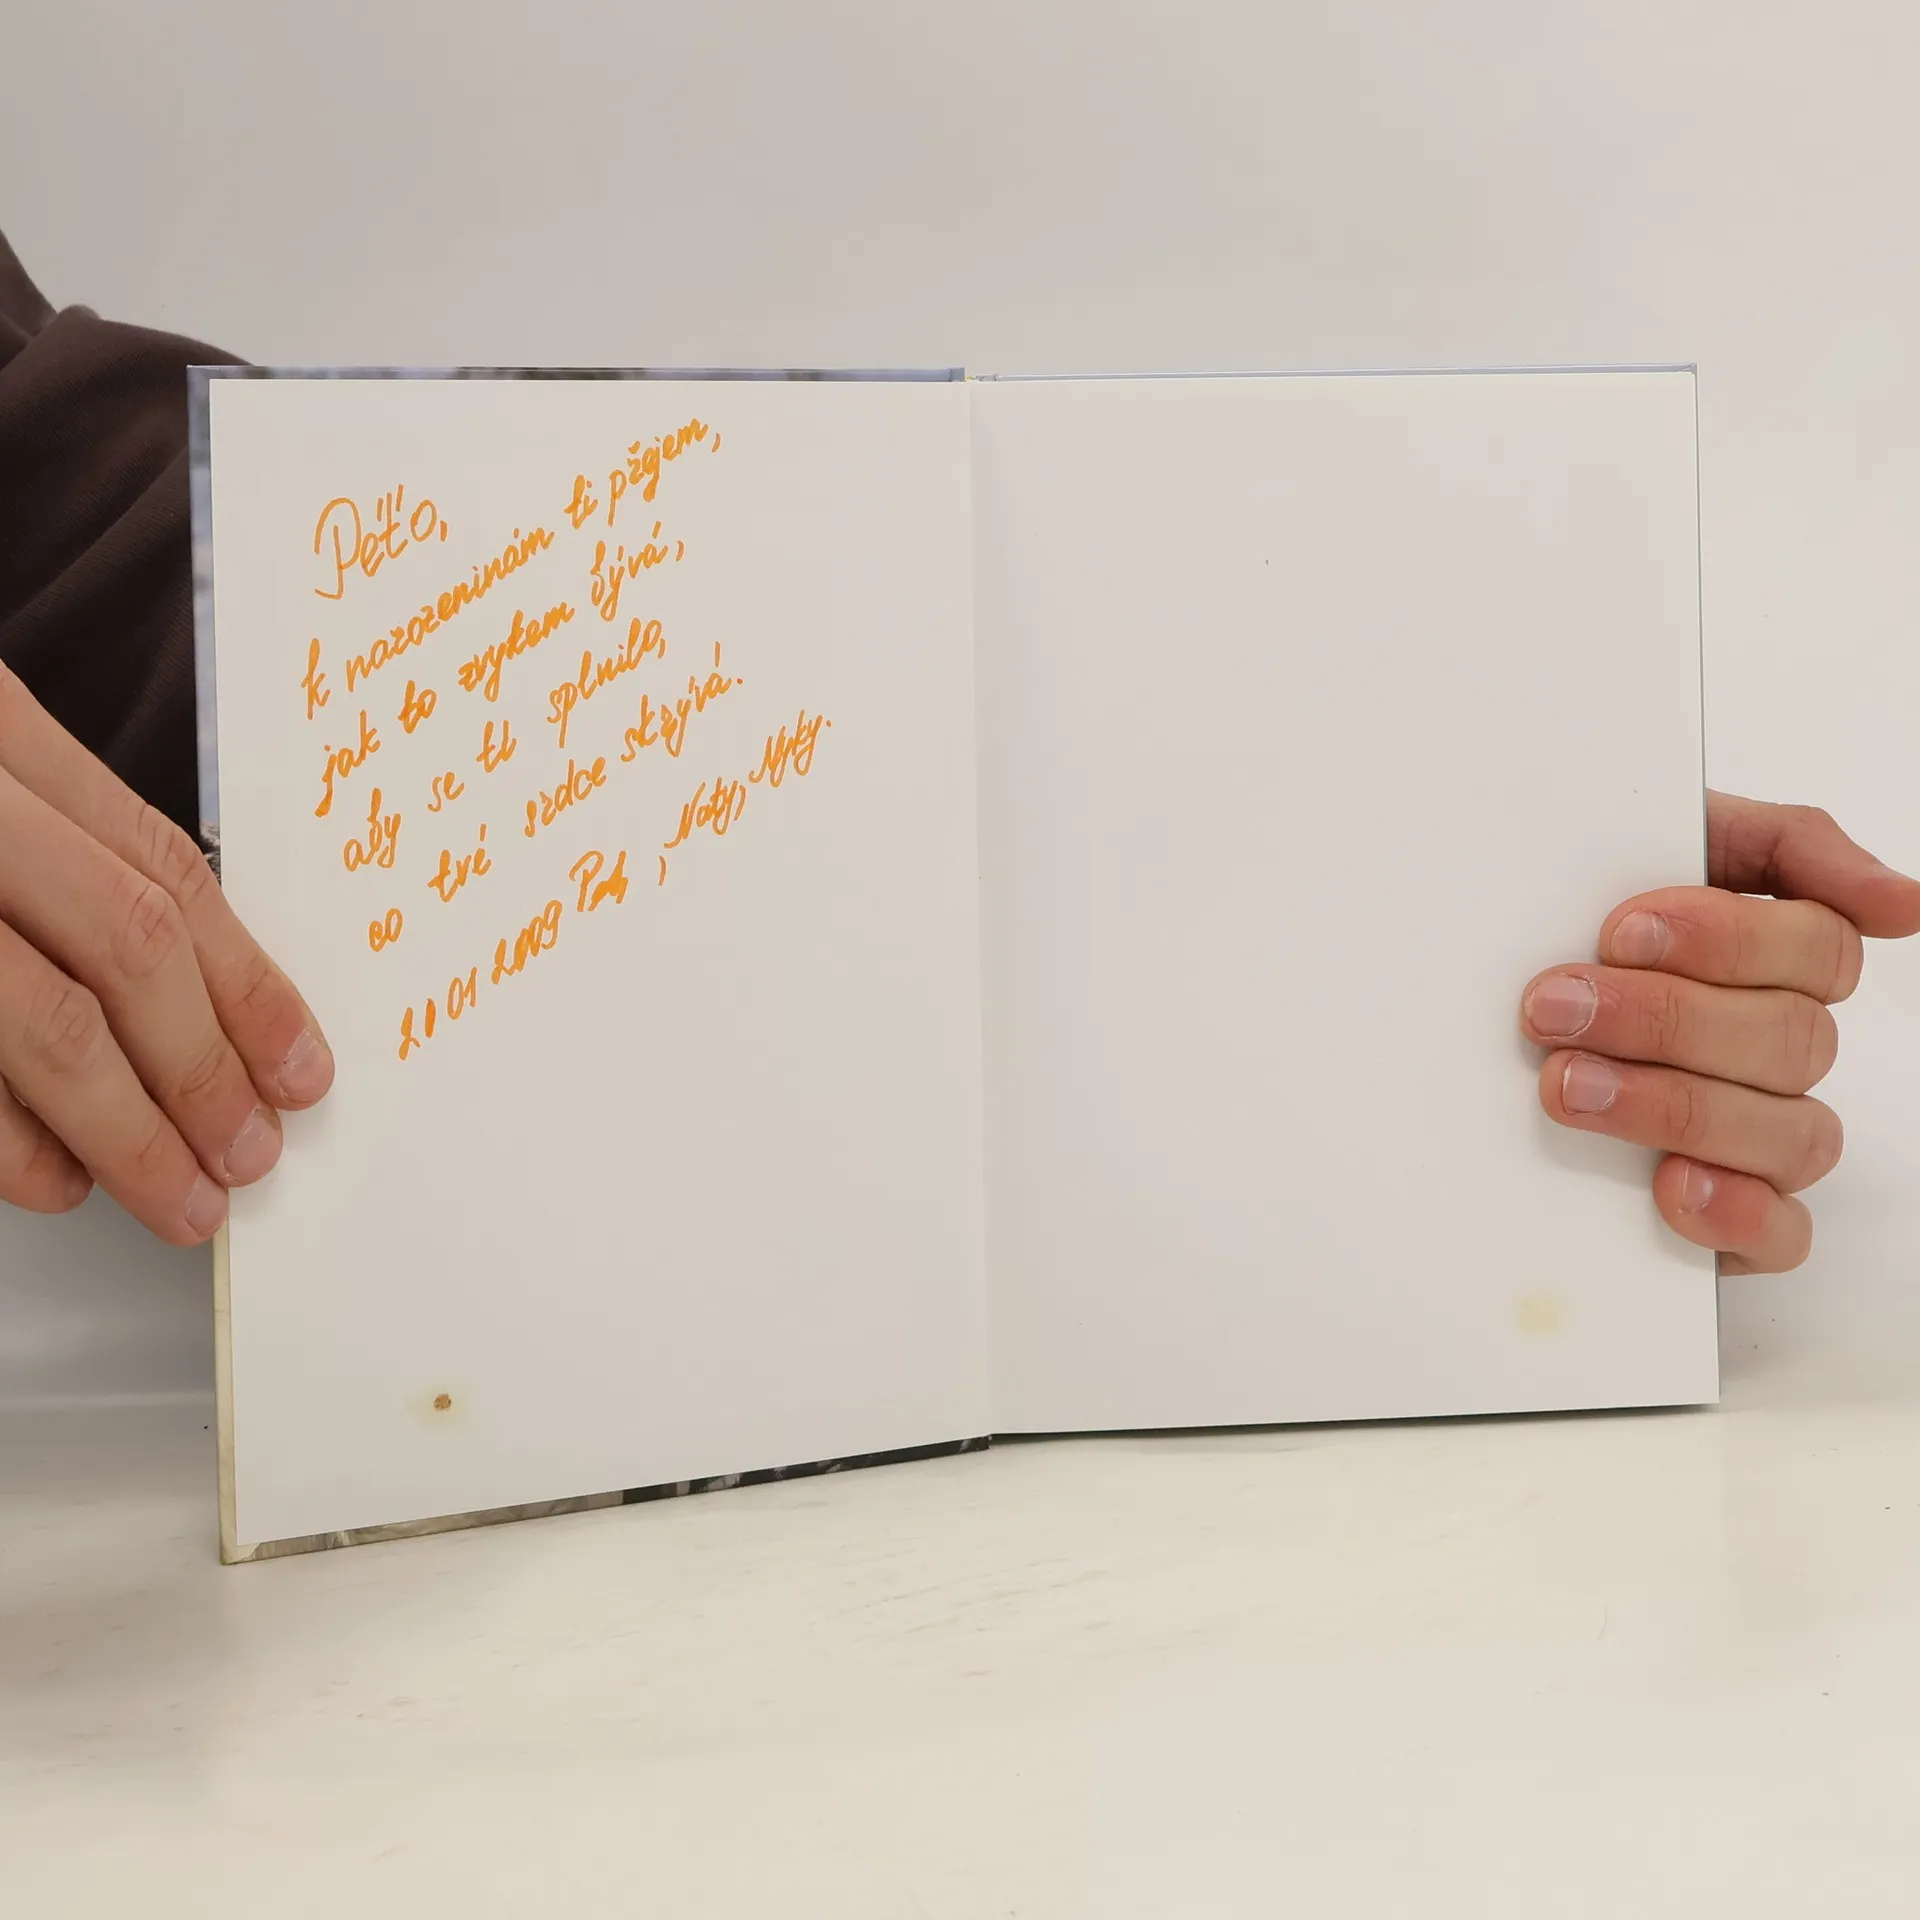 Péťo,
k narozeninám ti přejem,
jak to zvykem bývá,
aby se ti splnilo,
co tvé srdce skrývá.
21 01 2009 , Naty, Nyky.